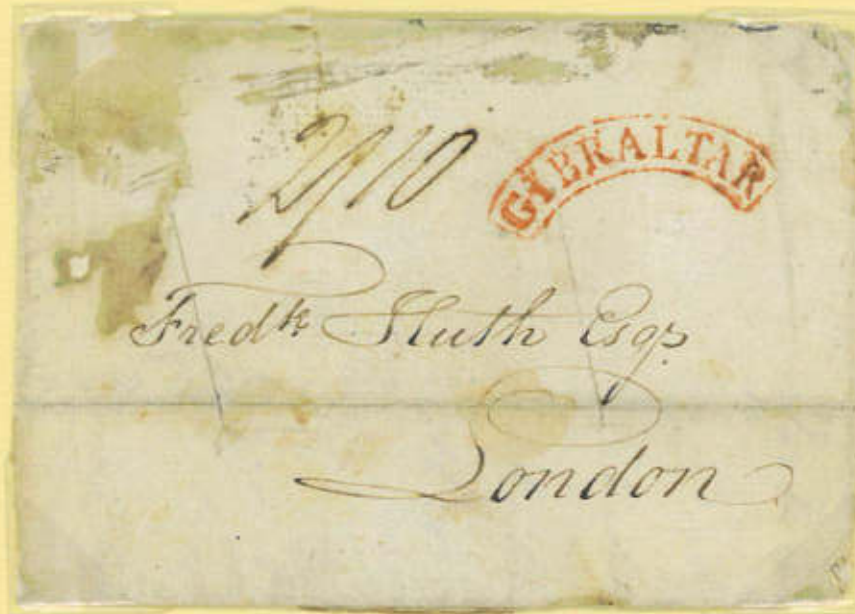 GIBRALTAR
2/10
Fredk Huth Esqr
London